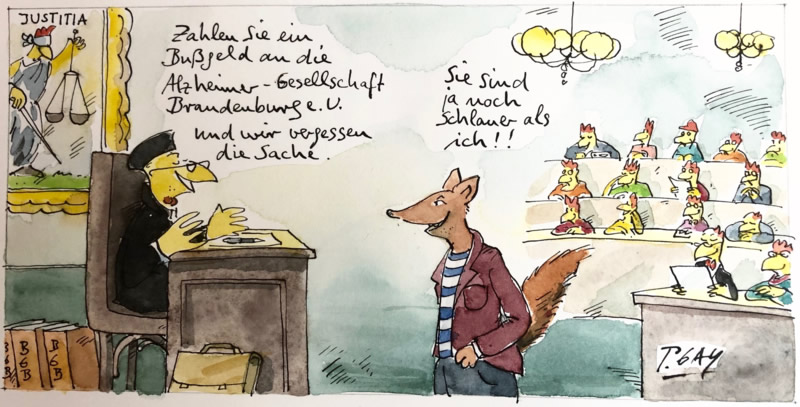 JUSTITIA
Zahlen Sie ein
Bußgeld an die
Alzheimer-Gesellschaft
Brandenburg e.V.
und wir vergessen
die Sache.
Sie sind
ja noch
Schlauer als
ich!!
B
G
B
B
G
B
B
G
B
T. GAY